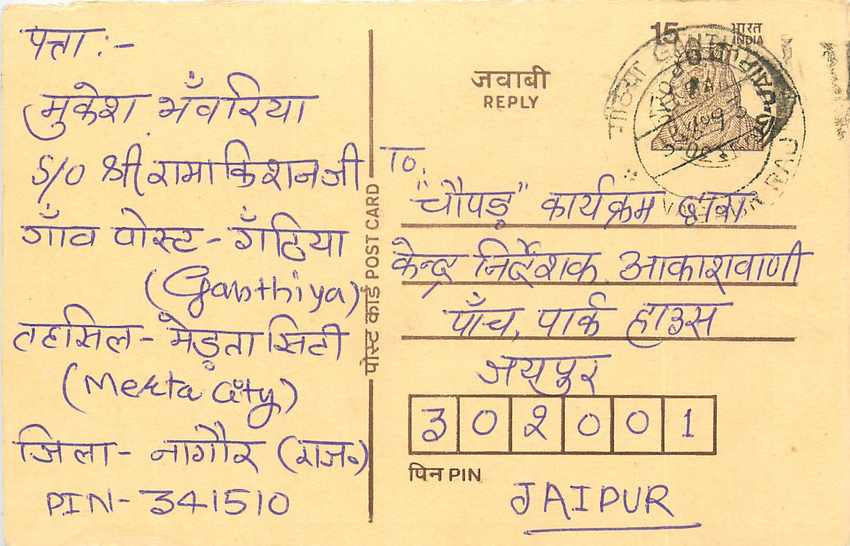 पत्ता :-
मुकेश भँवरिया
S/o श्री रामाकिशनजी
गाँव पोस्ट - गँठिया
(Ganthiya)
तहसिल - मेड़ता सिटी
(Merta City)
जिला - नागौर (राज॰)
PIN - 341510
पोस्ट कार्ड POST CARD
जवाबी
REPLY
15 भारत
INDIA
To,
"चौपड़" कार्यक्रम द्वारा
केन्द्र निर्देशक, आकाशवाणी
पाँच, पार्क हाउस
जयपुर
302001
पिन PIN
JAIPUR